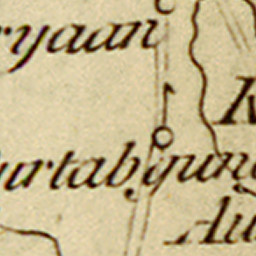 ryaan
K
urtabgung
Au